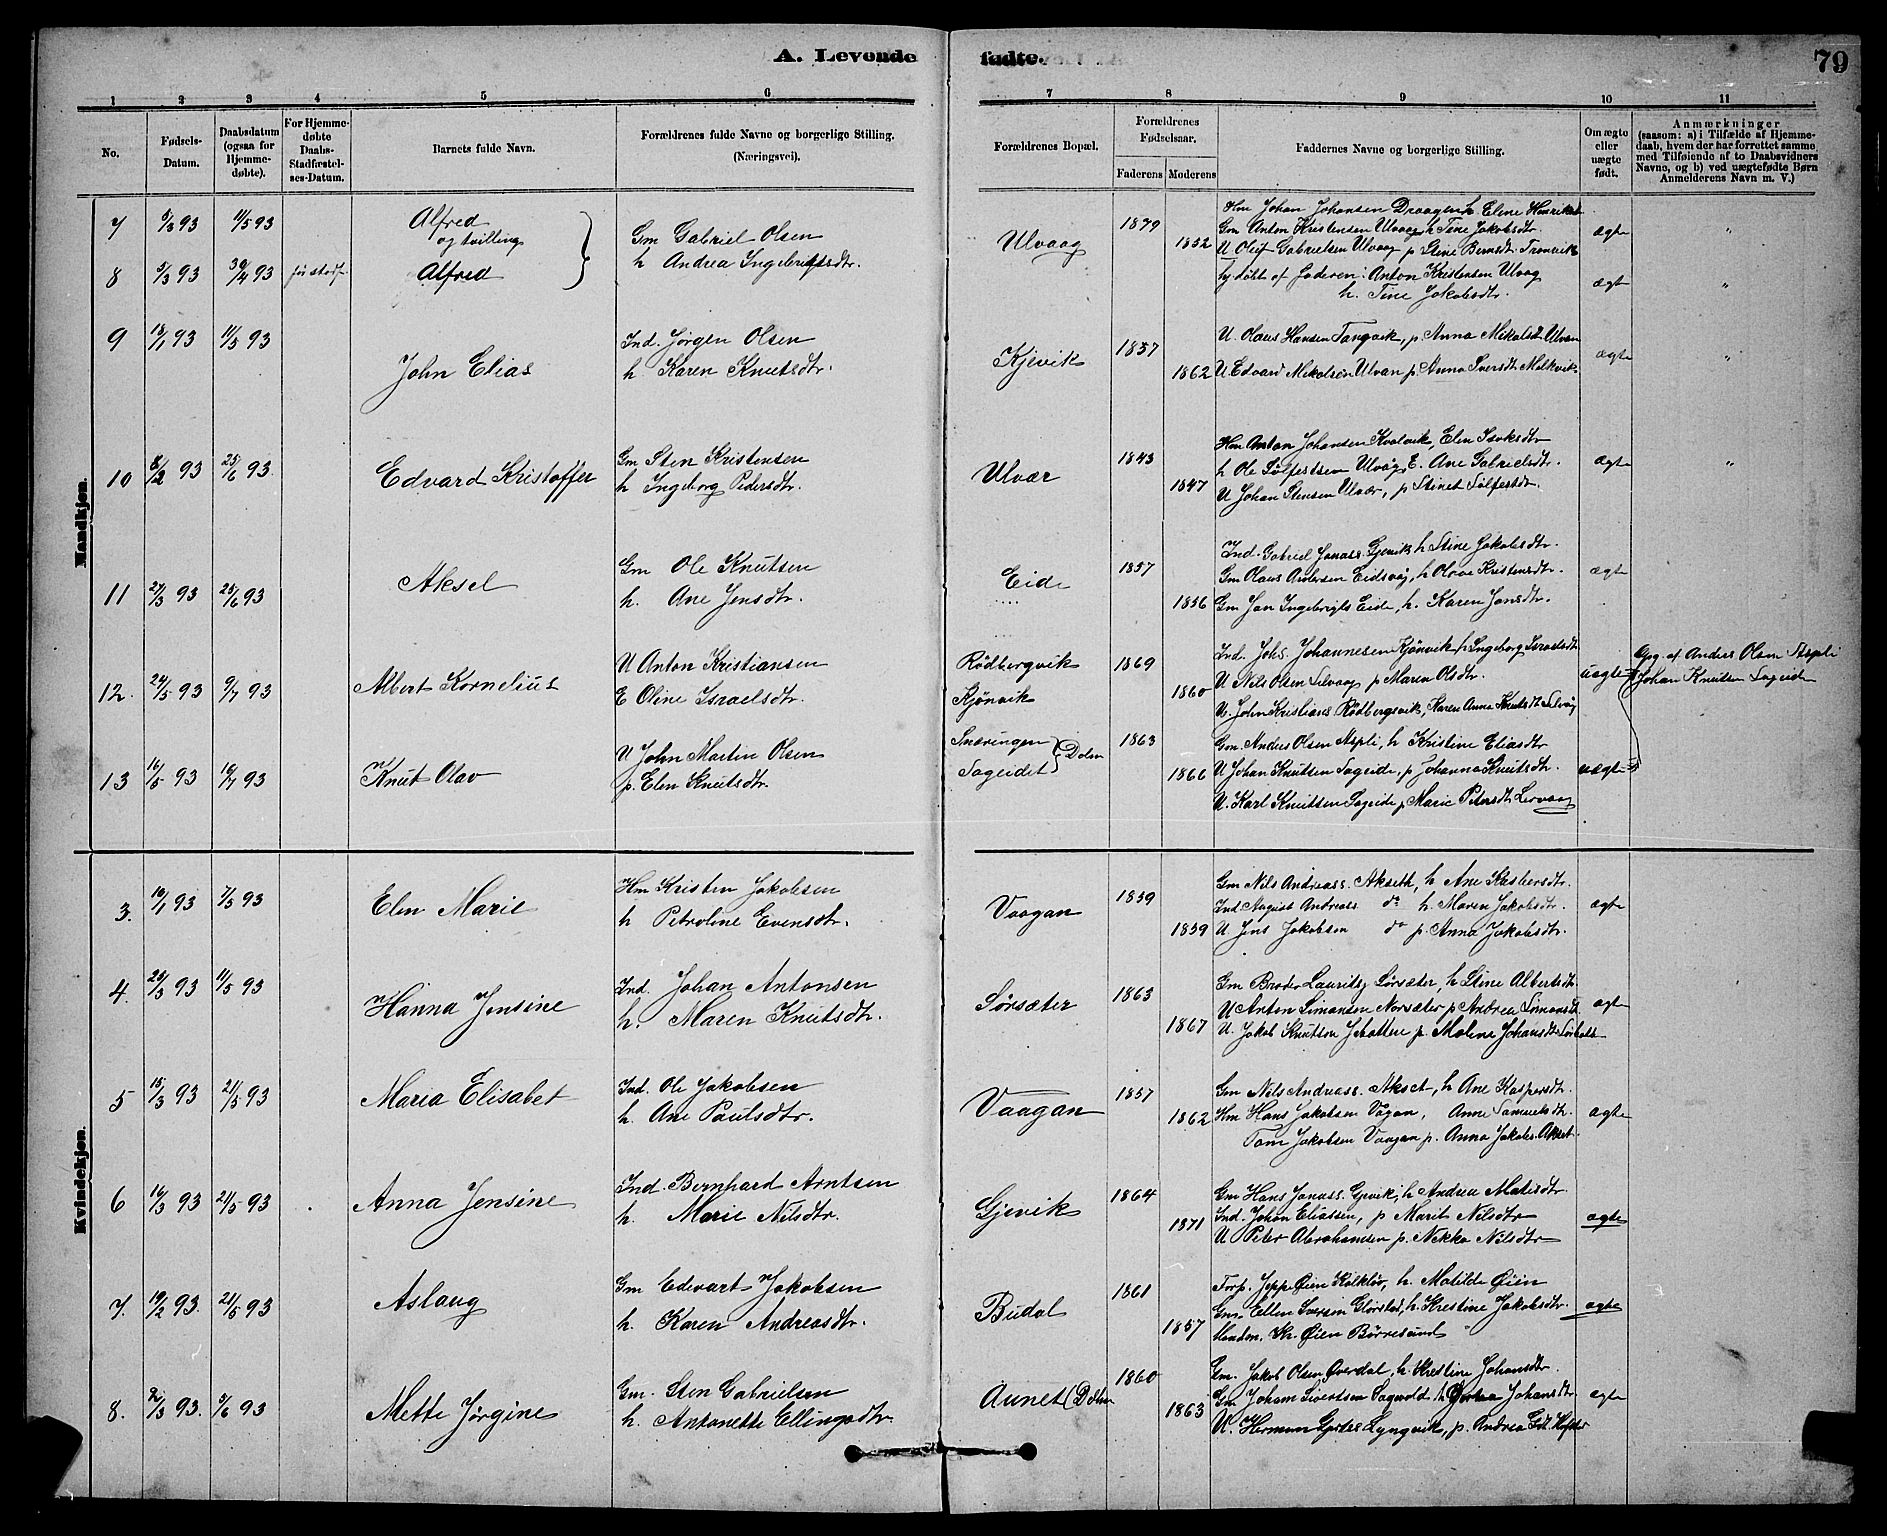 A. Levende fødte.
79
1 2 3 4 5 6 7 8 9 10 11
No.
Fødsels-Datum.
Daabsdatum (ogsaa for Hjemme-døbte).
For Hjemme-døbte Daabs-Stadfæstel-ses-Datum.
Barnets fulde Navn.
Forældrenes fulde Navne og borgerlige Stilling. (Næringsvei).
Forældrenes Bopæl.
Forældrenes Fødselsaar.
Faderens Moderens
Faddernes Navne og borgerlige Stilling.
Om ægte eller uægte født.
Anmærkninger (saasom: a) i Tilfælde af Hjemme-daab, hvem der har forrettet samme, med Tilføiende af to Daabsvidners Navne, og b) ved uægtefødte Børn Anmelderens Navn m. V.)
Mandkjøn.
7 5/3 93 11/5 93 Alfred
og tvilling
Gm Gabriel Olsen
h Andrea Ingebrigtsdtr.
Ulvaag 1879 1852
Hm Johan Johansen Draagen h Eline Henriksd
Gm Anton Kristensen Ulvaag h Tine Jakobsdtr.
U Oluf Gabrielsen Ulvaag p Stine Berntsdt. Tranvik
ægte "
8 5/3 93 30/4 93 Alfred
Hj døbt af Faderen: Anton Kristensen Ulvag
h. Tine Jakobsdtr.
ægte "
9 18/1 93 11/5 93 John Elias
Ind. Jørgen Olsen
h. Karen Knutsdtr.
Kjevik 1857 1862
U. Olaus Hansen Tangvik, p. Anna Mikalsdt Ulvan
U. Edvard Mikalsen Ulvan p. Anna Iversdt. Malkvik
ægte "
10 8/2 93 25/6 93 Edvard Kristoffer
Gm Sten Kristensen
h Ingeborg Pedersdtr.
Ulvær 1843 1847
Hm Anton Johansen Kvalvik, Elen Isaksdtr
h Ole Sølfestsen Ulvåg, E. Ane Gabrielsdtr.
U Johan Stensen Ulvær, p Stinet Sølfestdtr.
ægte "
11 27/3 93 25/6 93 Aksel
Gm Ole Knutsen
h. Ane Jensdtr.
Eide 1857 1856
Ind. Gabriel Jonass. Gjevik h Stine Jakobsdtr.
Gm Olaus Andersen Eidsvåg, h Olave Kristensdtr.
Gm Jan Ingebrigts Eide, h. Karen Jansdtr.
ægte
12. 24/5 93 9/7 93 Albert Kornelius
U Anton Kristiansen
E Oline Israelsdtr.
Rödbergvik
Kjønvik 1869 1860
Ind. Johs. Johannesen Kjønvik h Ingeborg Israelsdt
U Nils Olsen Selvaag p Maren Olsdtr.
U. John Kristians Rödbergsvik, Karen Anna Knutsdt. Selvåg
uægte
Opg. af Anders Olsen Aspli
Johan Knutsen Sageide
13 16/5 93 16/7 93 Knut Olav
U John Martin Olsen
p. Elen Knutsdtr.
Snæringen
Sageidet Dolm 1863 1866
Gm. Anders Olsen Aspli, h Kristine Eliasdtr
U Johan Knutsen Sageide, p Johanna Knutsdtr.
U. Karl Knutsen Sageide p Marie Petersdt. Lervaag
uægte
Kvindekjøn.
3. 10/1 93 7/5 93 Elen Marie
Hm Kristen Jakobsen
h Petroline Evensdtr.
Vaagan 1859 1859
Gm Nils Andreass. Akseth, h Ane Kasbersdtr.
Ind. August Andreass do h. Maren Jakobsdtr.
U Jens Jakobsen do p. Anna Jakobsdtr.
ægte
4. 25/3 93 11/5 93 Hanna Jensine
Ind. Johan Antonsen
h. Maren Knutsdtr.
Sørsæter 1863 1867
Gm Broder Laurits Sørsæter, h Stine Albertsdt.
U Anton Simonsen Norsæter p Andrea Simonsdt
U. Jakob Knutsen p. Maline Johansdt
ægte
5 15/3 93 21/5 93 Maria Elisabet
Ind. Ole Jakobsen
h. Ane Paulsdtr.
Vaagan 1857 1862
Gm Nils Andreass. Akset, h Ane Kaspersdtr.
Hm Hans Jakobsen Vågan, Anne Samuelsdt.
Tom Jakobsen Vaagan p. Anna Jakobs. Akset.
ægte
6 14/3 93 21/5 93 Anna Jensine
Ind. Bernhard Arntsen
h. Marie Nilsdtr.
Gjevik 1864 1871
Gm Hans Jonass. Gjevik, h Andrea Matisdtr.
Ind. Johan Eliassen, p Marit Nilsdtr
U Peter Abrahamsen p. Nekka Nilsdtr
ægte
7. 19/2 93. 21/5 93 Aslaug
Gm Edevart Jakobsen
h. Karen Andreasdtr.
Budal 1861 1857
Forp. Jeppe Øien Kalklov, h. Matilde Øien
Gm. Ellen Iversen Glørstad, h. Kristine Jakobsdtr.
Handm. Kr. Øien Børresund
ægte
8. 2/3 93. 5/6 93 Mette Jørgine
Gm. Sten Gabrielsen
h. Antonette Ellingsdtr.
Aunet (Dolm 1860 1863
Gm. Jakob Olsen Overdal, h. Kristine Johansdtr.
Gm Johan Sivertsen Sagvold h Johansdtr
U. Herman Gjertes Lyngvik, p. Andrea
ægte